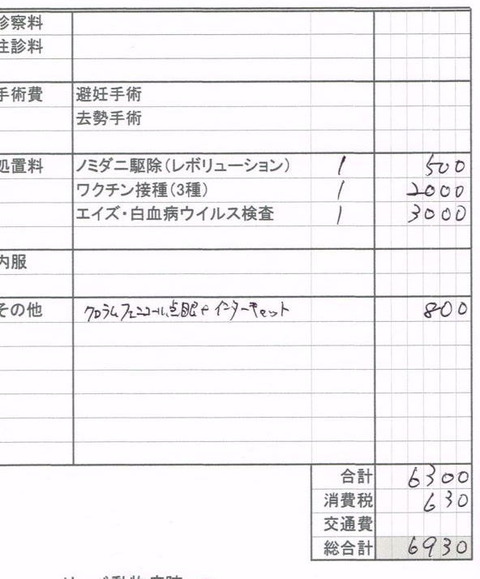 診察料
往診料
手術費 避妊手術
去勢手術
処置料 ノミダニ駆除(レボリューション) 1 500
ワクチン接種(3種) 1 2000
エイズ・白血病ウイルス検査 1 3000
内服
その他 クロラムフェニコール点眼+インターキャット 800
合計 6300
消費税 630
交通費
総合計 6930